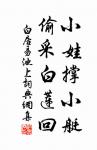 小娃撑小艇
偷采白莲回
白居易池上詞典網集